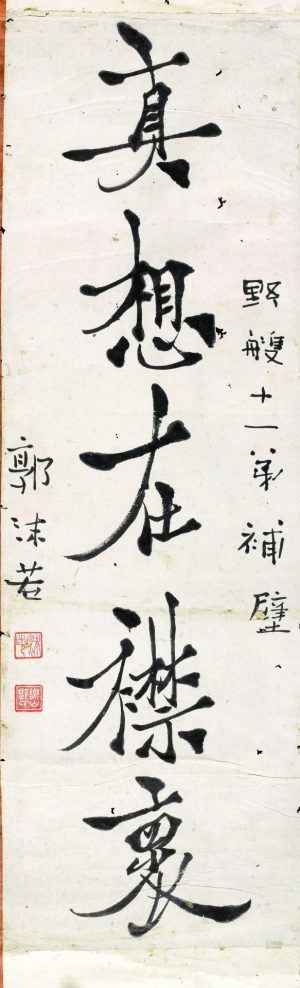 野艘十一弟補壁
真想在襟裏
郭沫若